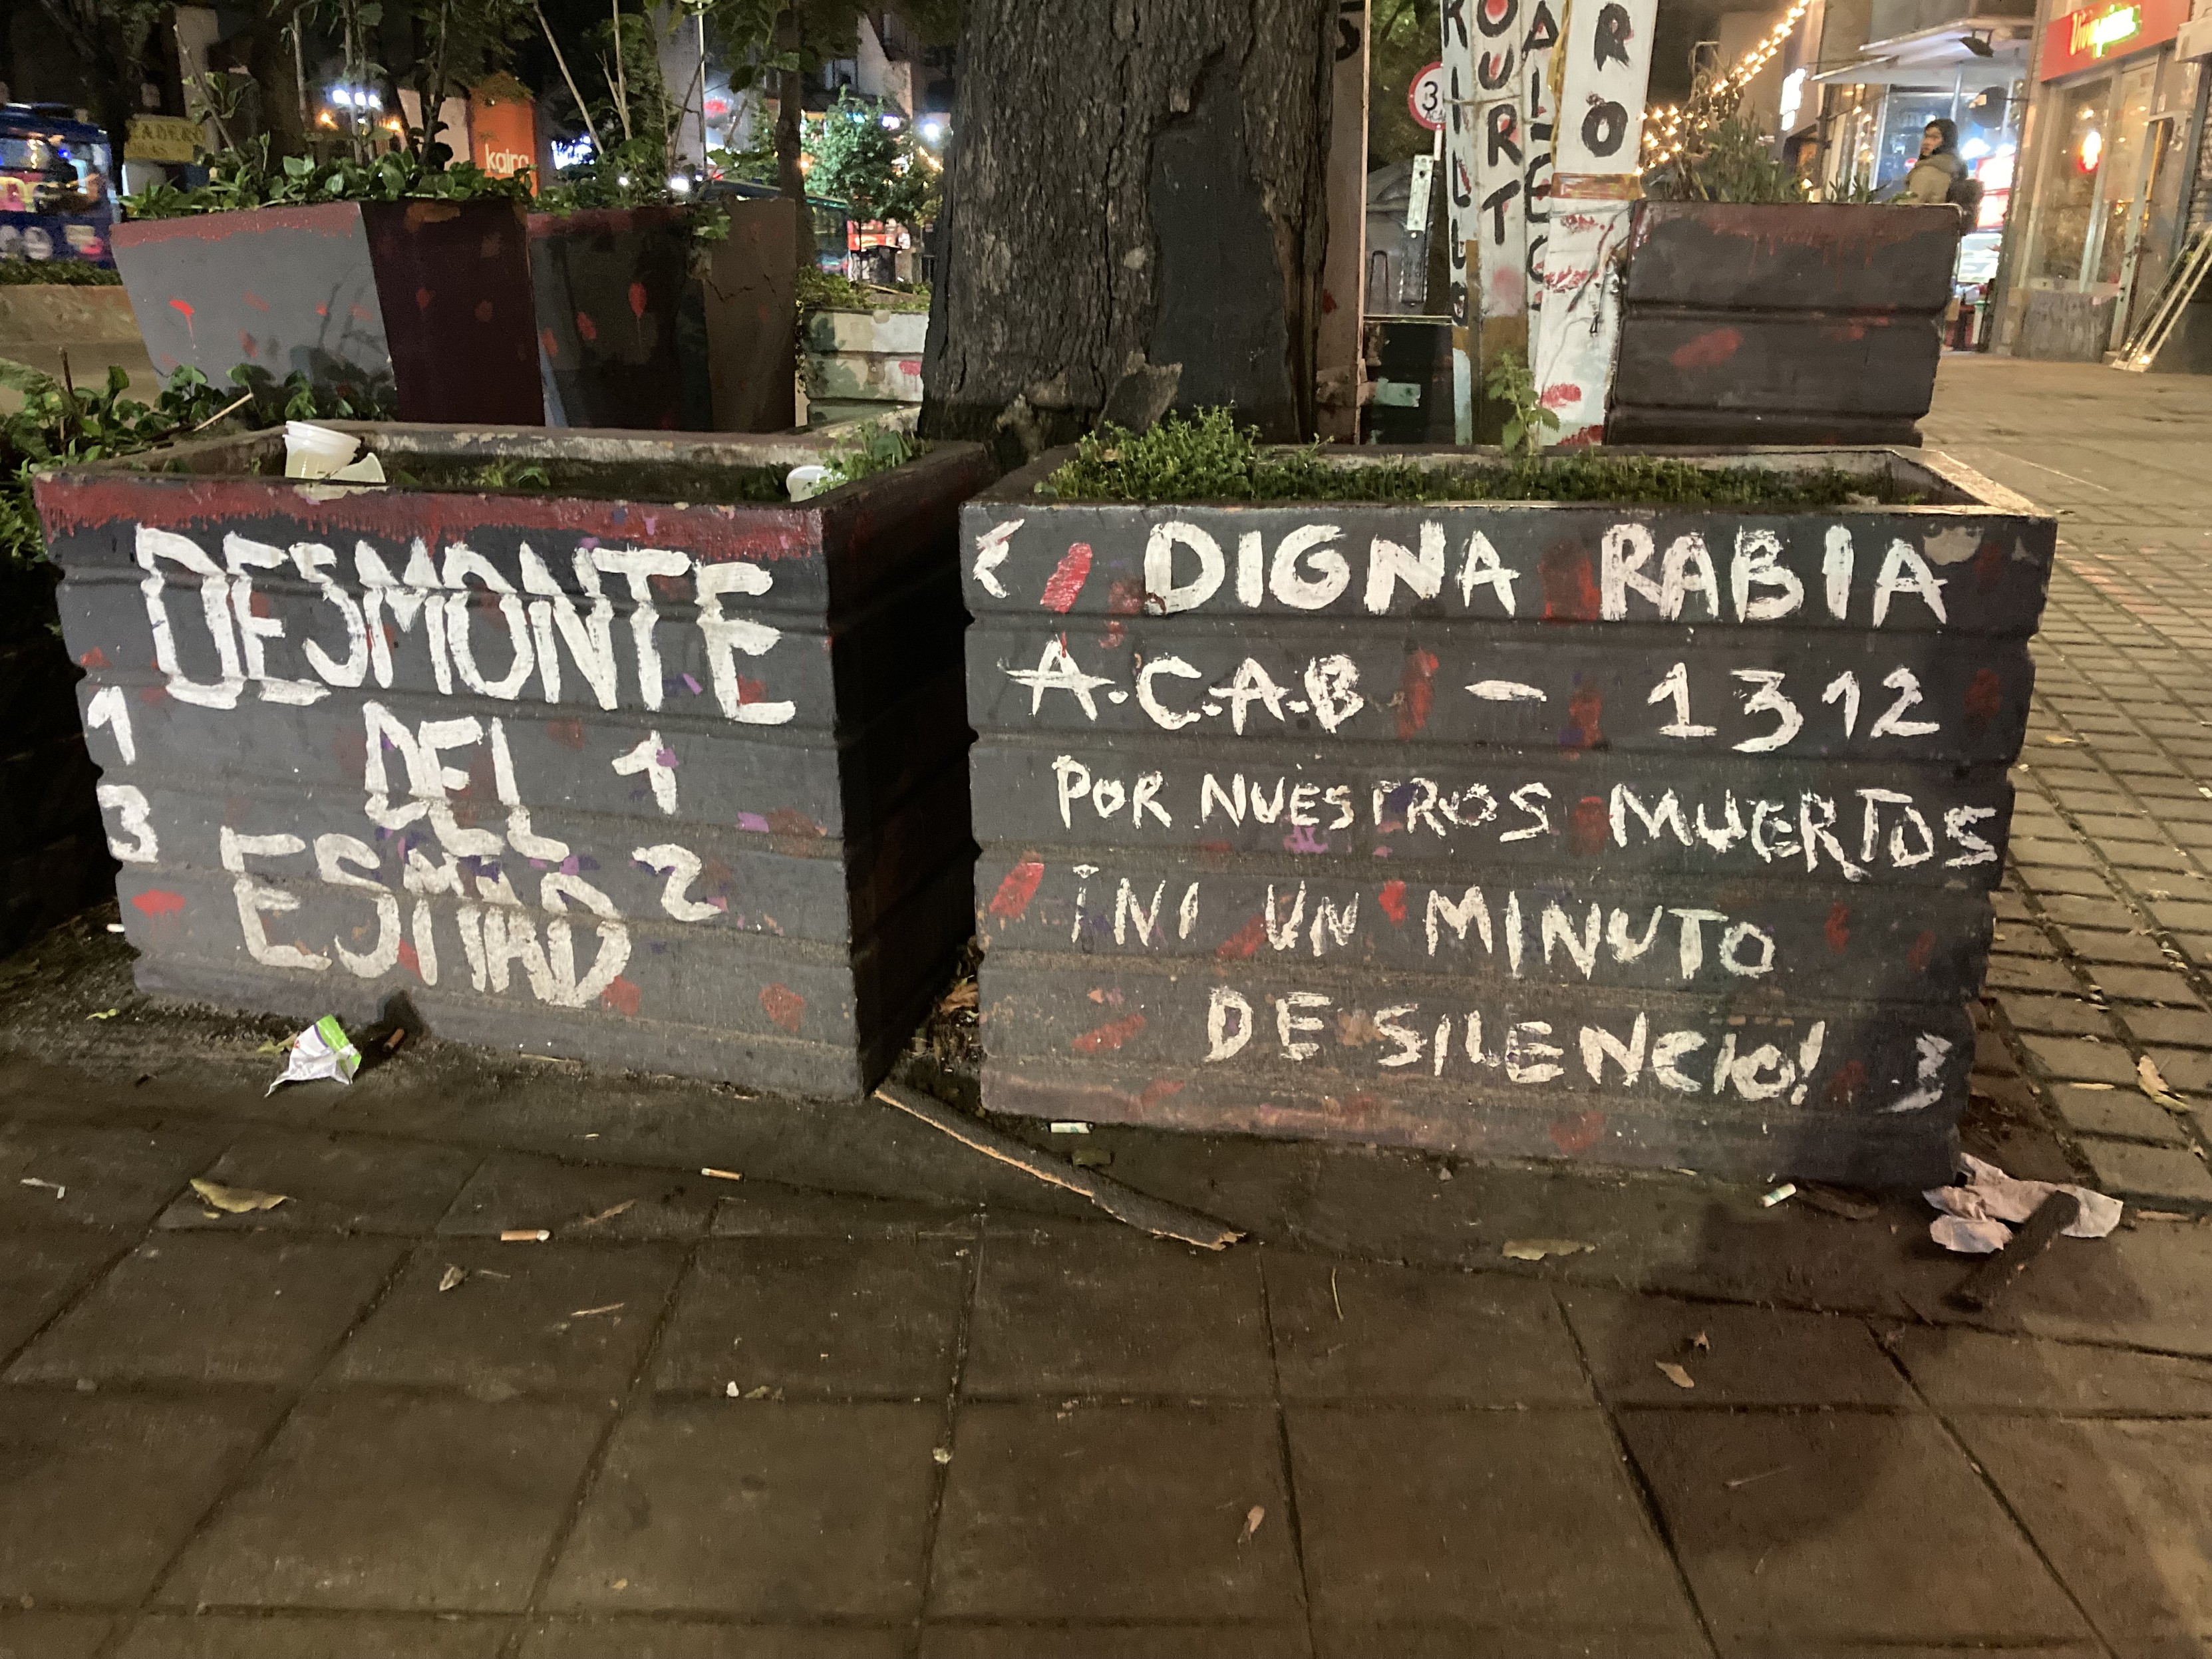 DESMONTE
DEL
ESMAD
1
3
1
2
DIGNA RABIA
A.C.A.B - 1312
POR NUESTROS MUERTOS
¡NI UN MINUTO
DE SILENCIO!
kaira
3